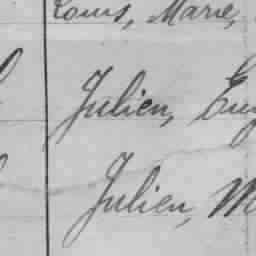 Louis, Marie,
Julien, Eug
Julien, M